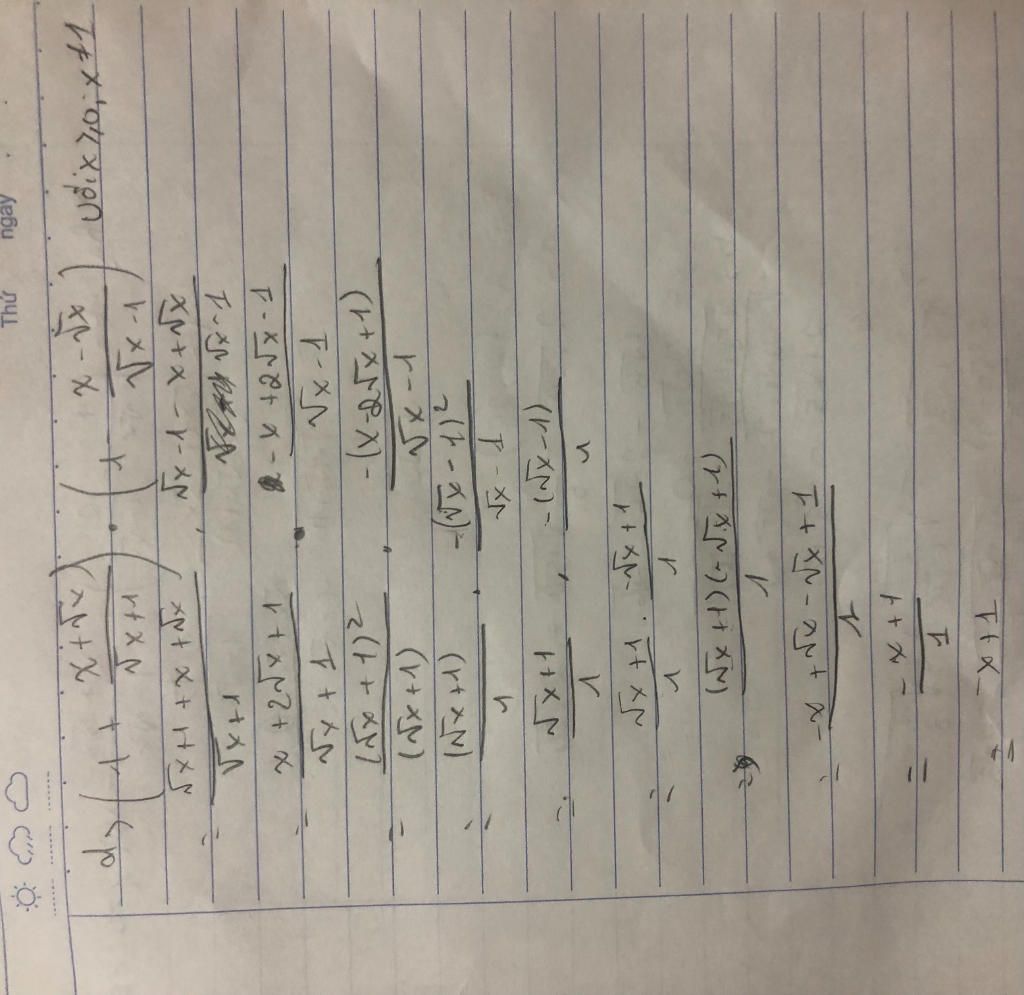 Thứ ngày
d) (1 + (x+√x)/(√x+1)) · (1 - (x-√x)/(√x-1)) với x ≥ 0; x ≠ 1
= (√x+1+x+√x)/(√x+1) · (√x-1-x+√x)/(√x-1)
= (x+2√x+1)/(√x+1) · (-x+2√x-1)/(√x-1)
= (√x+1)²/(√x+1) · -(x-2√x+1)/(√x-1)
= (√x+1)/1 · -(√x-1)²/(√x-1)
= (√x+1)/1 · -(√x-1)/1
= (√x+1)/1 · (-√x+1)/1
= (√x+1)(-√x+1)/1
= (-x+√x-√x+1)/1
= (-x+1)/1
= -x+1